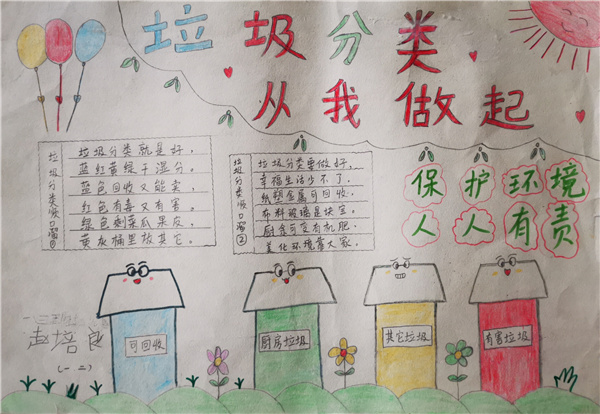 垃圾分类
从我做起
垃圾分类顺口溜①
垃圾分类就是好,
蓝红黄绿干湿分。
蓝色回收又能卖,
红色有毒又有害。
绿色剩菜瓜果皮,
黄灰桶里放其它。
垃圾分类顺口溜②
垃圾分类要做好,
幸福生活少不了。
纸塑金属可回收,
布料玻璃是块宝。
厨房可变有机肥,
美化环境靠大家。
保护环境
人人有责
赵培良
(一 二)
可回收
厨房垃圾
其它垃圾
有害垃圾